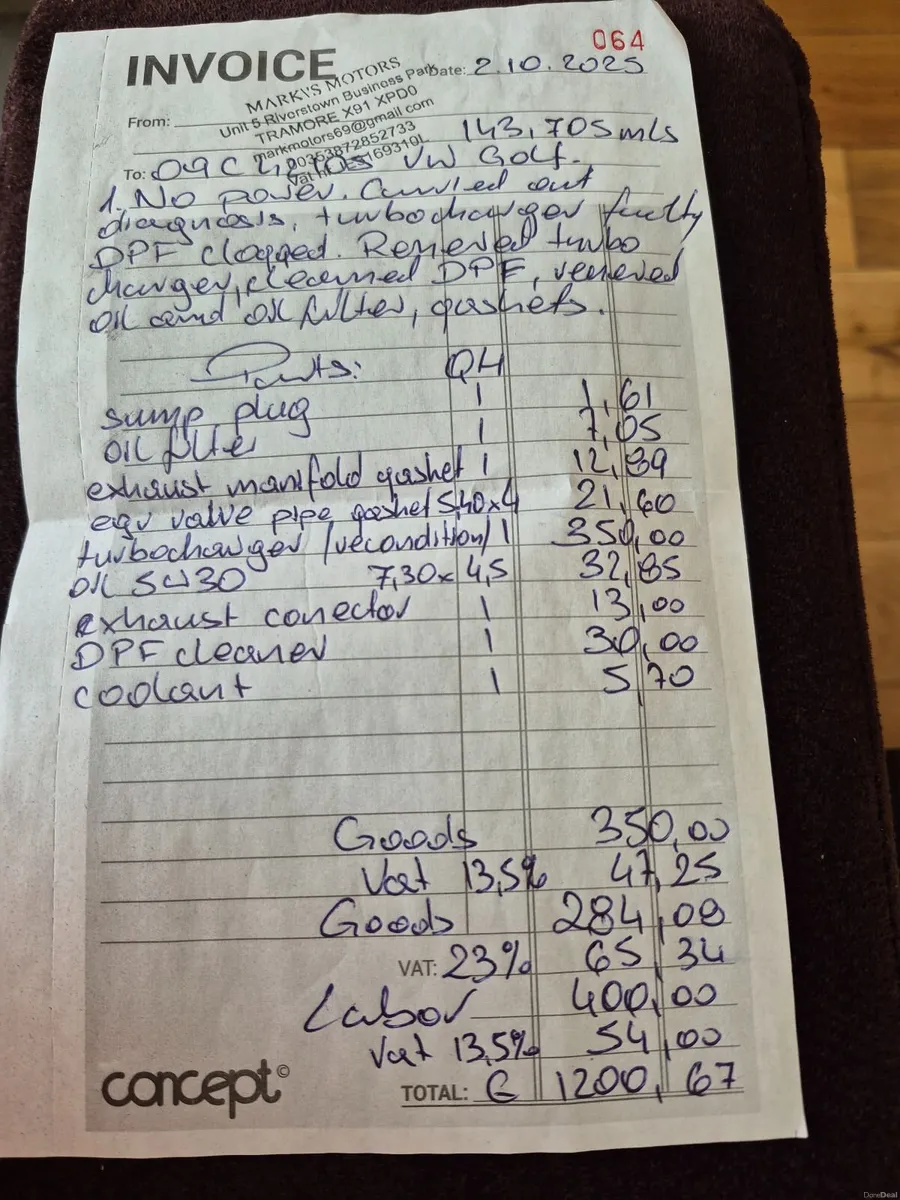 064
INVOICE
Date: 2.10.2025
MARKI'S MOTORS
Unit 5 Riverstown Business Park
TRAMORE X91 XPD0
markmotors69@gmail.com
00353872852733
From:
143,705 mls
To: 09C VW Golf.
1. No power. Carried out
diagnosis, turbocharger faulty
DPF clogged. Renewed turbo
charger, cleaned DPF, renewed
oil and oil filter, gaskets.
Parts: Qty
sump plug 1 1,61
oil filter 1 7,05
exhaust manifold gasket 1 12,89
egr valve pipe gasket 5,40x4 21,60
turbocharger /recondition/ 1 350,00
oil 5W30 7,30x 4,5 32,85
exhaust conector 1 13,00
DPF cleaner 1 30,00
coolant 1 5,70
Goods 350,00
Vat 13,5% 47,25
Goods 284,08
VAT: 23% 65,34
Labor 400,00
Vat 13,5% 54,00
TOTAL: € 1200,67
concept©
DoneDeal